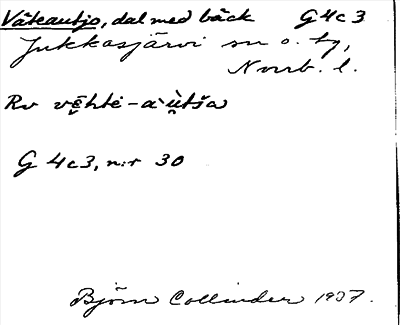 Väteautjo, dal med bäck G 4 c 3
Jukkasjärvi sn o. tg,
Norrb. l.
Rv vē̮htė-a`ù̮tša
G 4 c 3, n:r 30
Björn Collinder 1937.